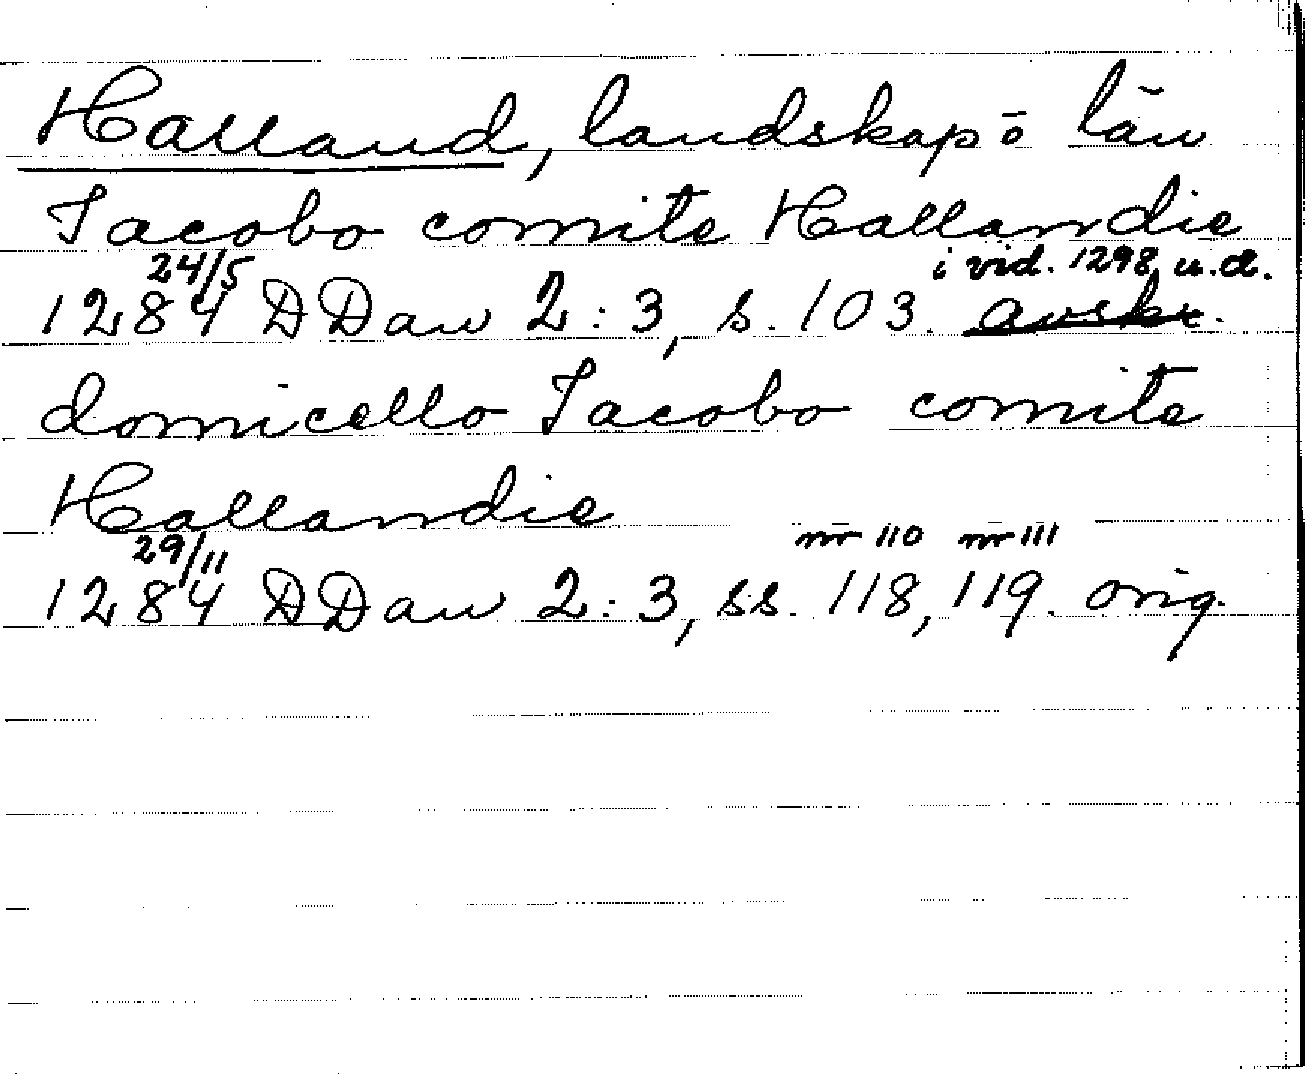 Halland, landskap o län
Jacobo comite Hallandie
24/5 i vid. 1298 u.d.
1284 DDan 2:3, s. 103. avskr.
domicello Jacobo comite
Hallandie
29/11 nr 110 nr 111
1284 DDan 2:3, ss. 118, 119. orig.